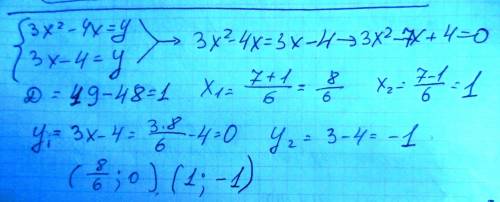 {3x²-4x=y
3x-4=y → 3x²-4x=3x-4→3x²-7x+4=0
D=49-48=1 x₁=(7+1)/6=8/6 x₂=(7-1)/6=1
y₁=3x-4=(3·8)/6-4=0 y₂=3-4=-1
(8/6;0) (1;-1)